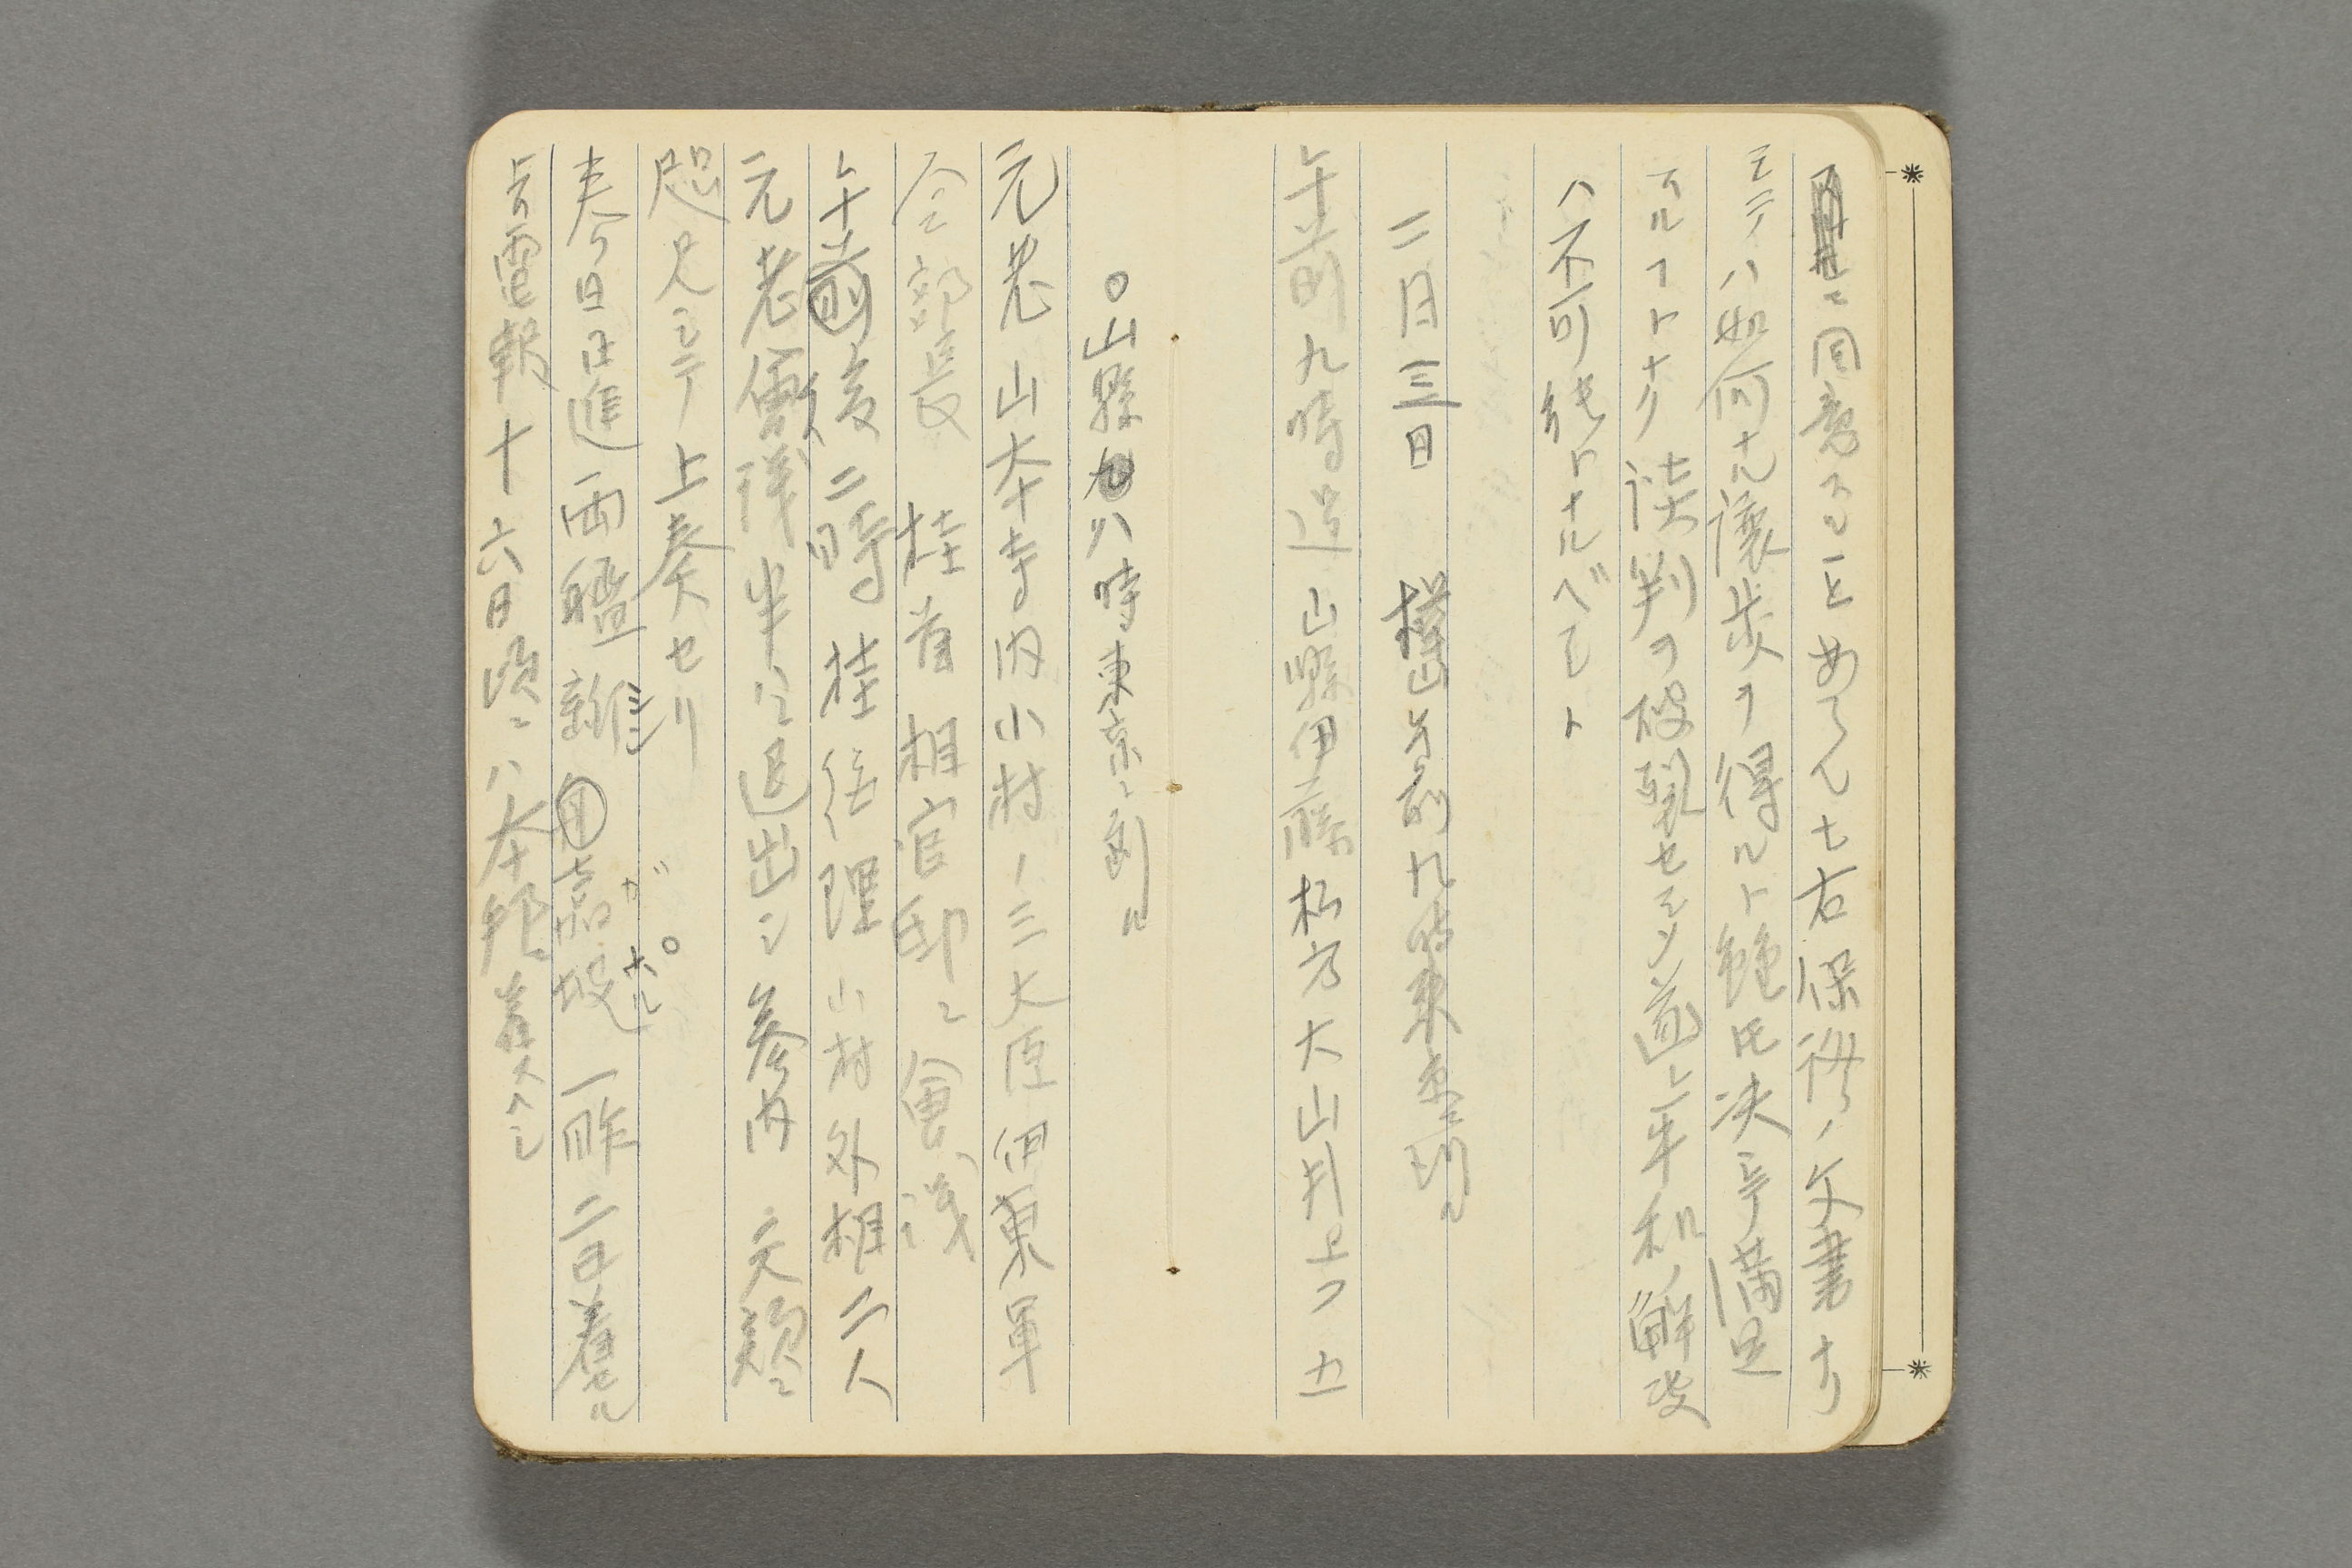 ニ同意スル上めても右保障ノ文書ナリ
シテハ如何ナル譲歩ヲ得ルト雖氏決シテ満足
スルコトナク談判ヲ破裂セシメ遂ニ平和ノ解決
ハ不可能トナルベシト
二月三日 山午前九時東京ニ到ル
午前九時過山縣伊藤松方大山井上ノ五
○山縣ハ八時東京ニ到ル
元老山本寺内小村ノ三大臣伊東軍
令部長桂首相官邸ニ會議
午後二時桂総理小村外相二人
元老會議半ニ退出シ参内天顔ニ
咫尺シテ上奏セリ
春日日進両艦新嘉坡
ガポール
一昨二日着セル
旨電報十六日頃ニハ本邦ニ着スヘシ